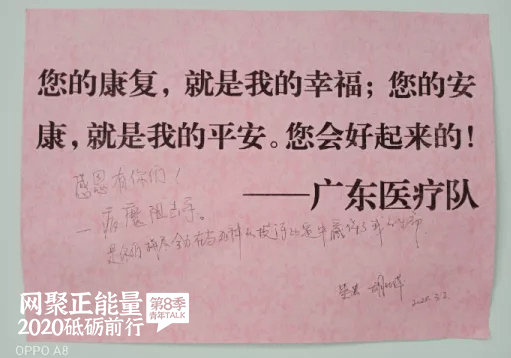 您的康复，就是我的幸福；您的安
康，就是我的平安。您会好起来的！
——广东医疗队
感恩有你们！
一病魔阻击手。
是你们竭尽全力在与
2020.3.2
网聚正能量 第8季
2020砥砺前行 青年TALK
OPPO A8